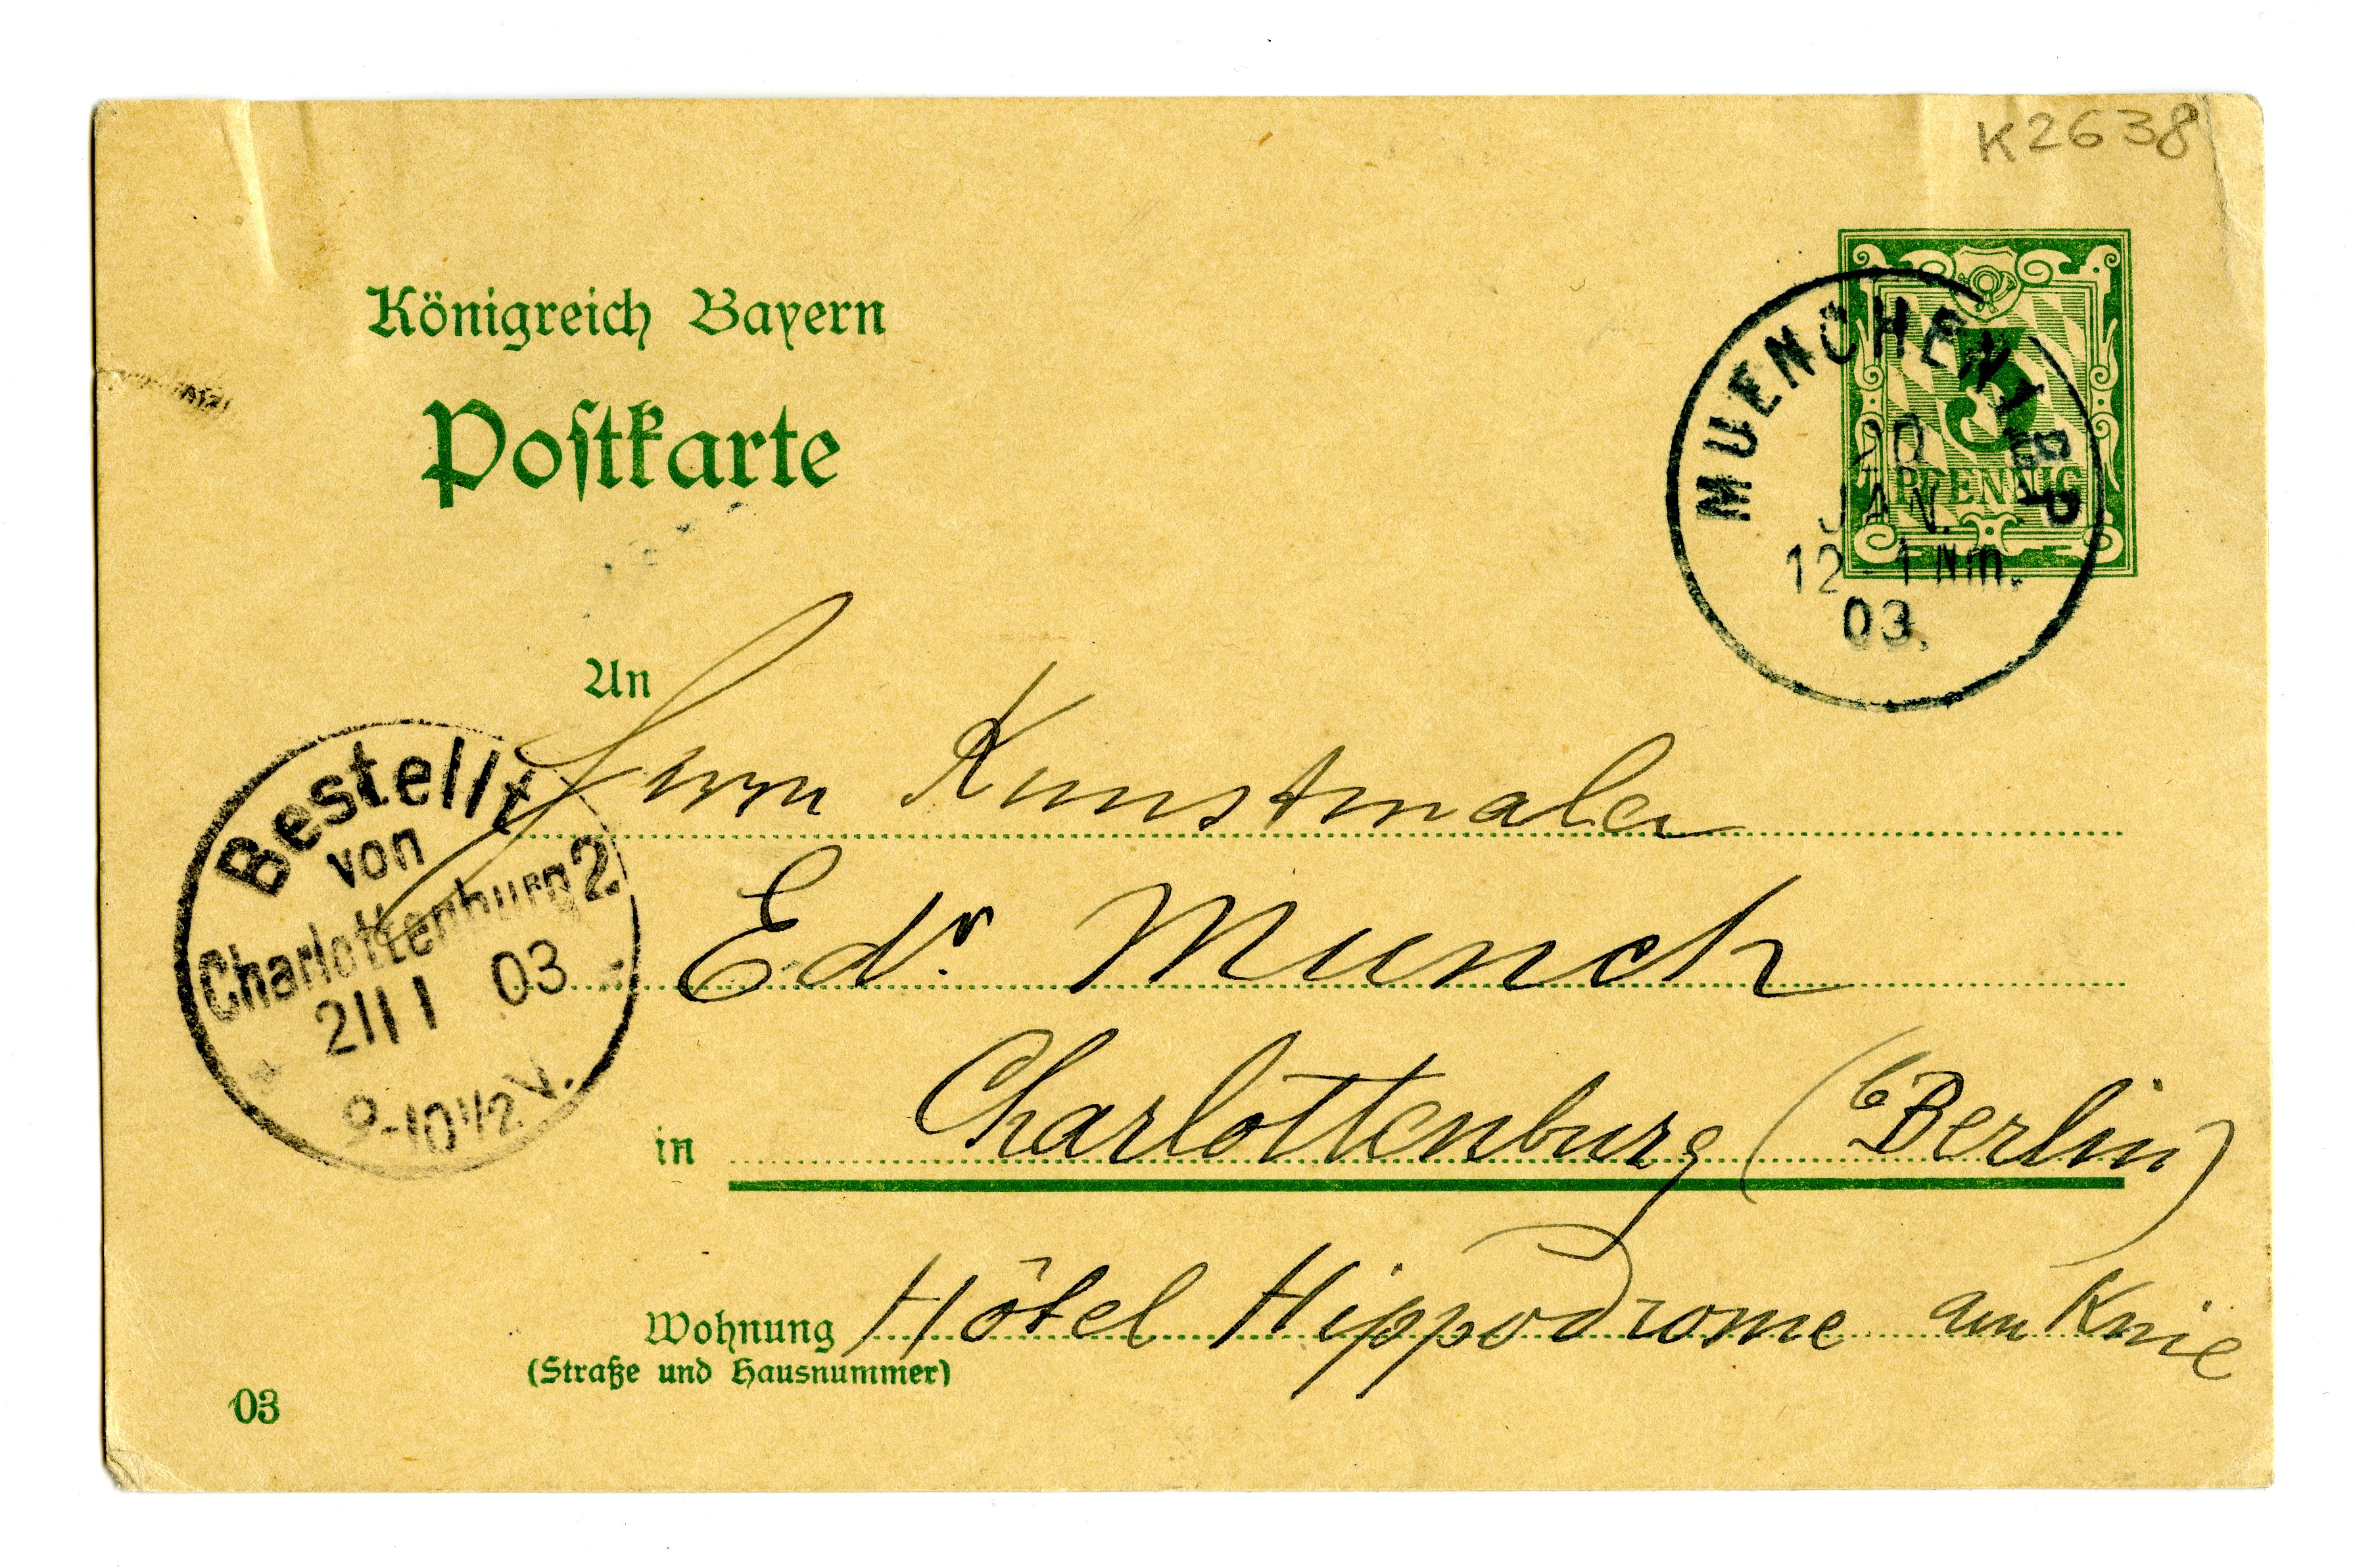 K2638
Königreich Bayern
Postkarte
5
PFENNIG
MUENCHEN 1 B.P
20
JAN.
12-1 Nm.
03.
An
Herrn Kunstmaler
Edv. Munch
in Charlottenburg (b Berlin)
Wohnung Hôtel Hippodrome am Knie
(Straße und Hausnummer)
03
Bestellt
von
Charlottenburg 2
21 1 03
9-10 1/2 V.